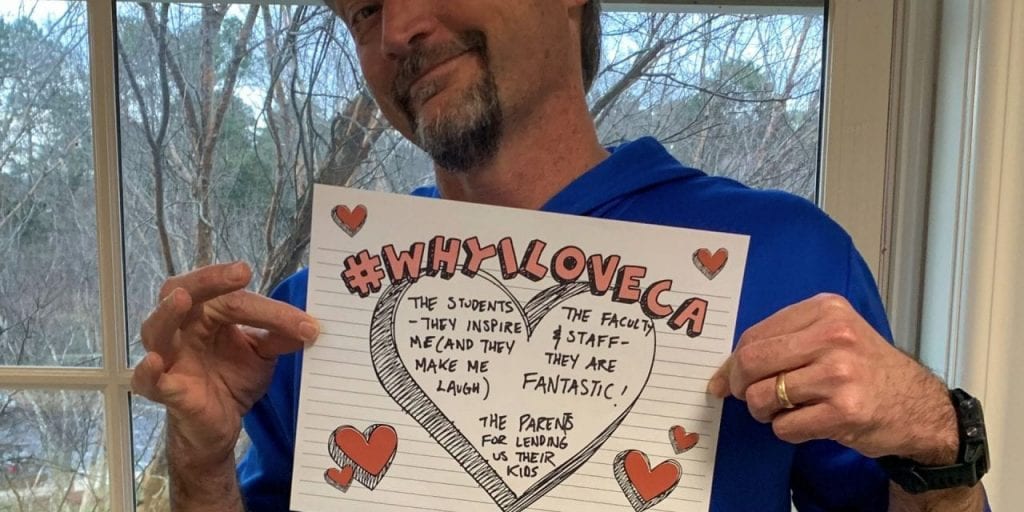 #WHYILOVECA
THE STUDENTS
- THEY INSPIRE
ME (AND THEY
MAKE ME
LAUGH)
THE FACULTY
& STAFF -
THEY ARE
FANTASTIC!
THE PARENTS
FOR LENDING
US THEIR
KIDS